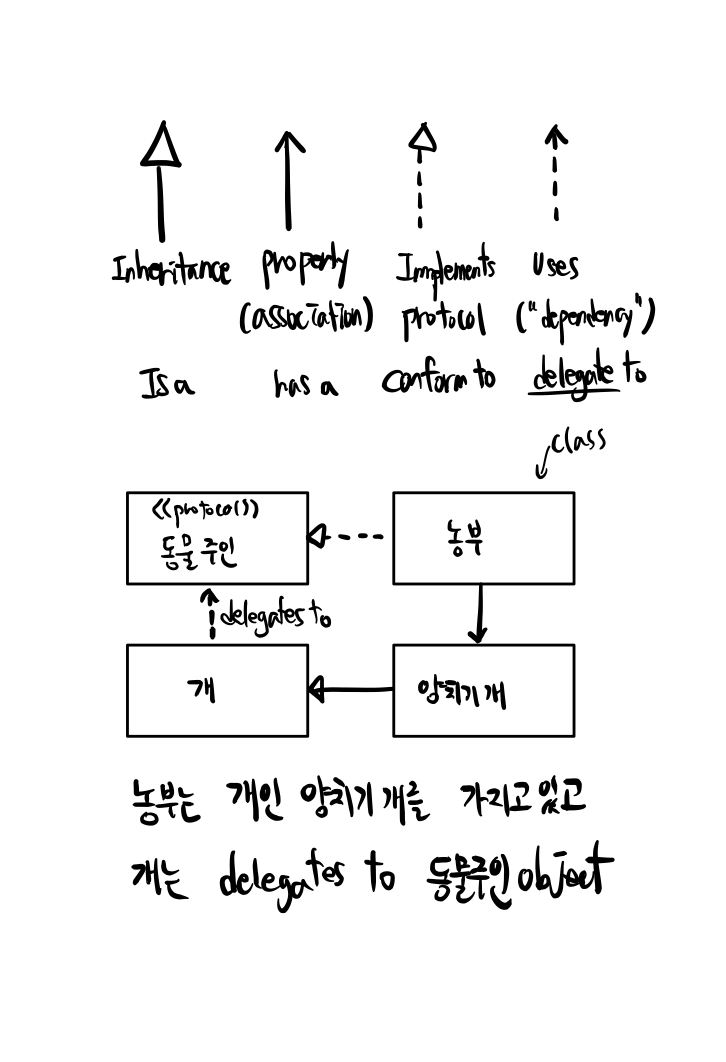 Inheritance property Implements Uses
(association) protocol ("dependency")
Is a has a Conform to delegate to
class
<<protocol>>
동물주인
농부
delegates to
개
양치기개
농부는 개인 양치기개를 가지고있고
개는 delegates to 동물주인object